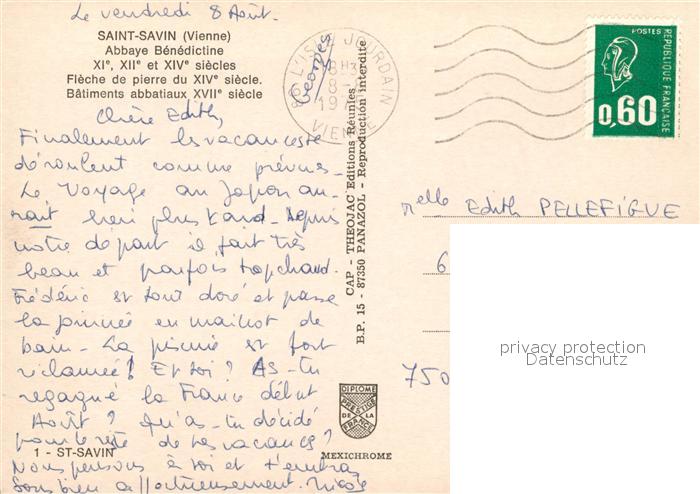 Le vendredi 8 Août.
SAINT-SAVIN (Vienne)
Abbaye Bénédictine
XIe, XIIe et XIVe siècles
Flèche de pierre du XIVe siècle.
Bâtiments abbatiaux XVIIe siècle
Chère Edith,
Finalement les vacances se
déroulent comme prévues-
Le Voyage au Japon au-
rait lieu plus tard. Depuis
notre départ il fait très
beau et parfois trop chaud.
Frédéric est tout doré et passe
la journée en maillot de
bain- La piscine est fort
réclamée! Et toi? AS-tu
regagné la France début
Août? Qu'as-tu décidé
pour le reste de tes vacances?
Nous pensons à toi et t'embras
sons bien affectueusement. Nicole
Georges
1 - ST-SAVIN
86 L'ISLE JOURDAIN
8H
8 -
19
VIENNE
CAP - THEOJAC Editions Réunies
B.P. 15 - 87350 PANAZOL - Reproduction interdite
DIPLOME
PRESTIGE
DE LA
FRANCE
MEXICHROME
POSTES
REPUBLIQUE FRANÇAISE
0,60
Melle Edith PELLEFIGUE
6
750
privacy protection
Datenschutz